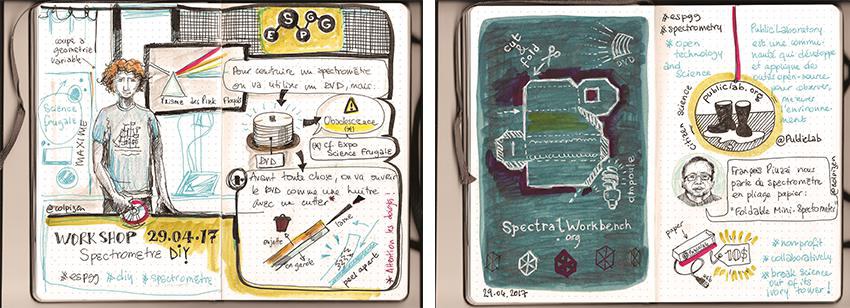 coupe à
géometrie
variable
Science
frugale
MAXIME
@colpizen
WORKSHOP 29.04.17
Spectromètre DiY
#espgg #diy #spectromètre
Prisme des Pink Floyds
ESPGG
Pour construire un spectromètre
on va utiliser un DVD, mais:
Obsolescence
(*)
(*) cf. Expo
Science Frugale
DVD
Avant toute chose, on va ouvrir
le DVD comme une huître
avec un cutter *
lame
en garde
peel apart
* Attention les doigts
cut &
fold
DVD
ampoule
SpectralWorkbench
.org
29.04.2017
#espgg
#spectrometry
#open
technology
and
Science
Public Laboratory
est une commu-
nauté qui développe
et applique des
outils open-source
pour observer,
mesurer
l'environne-
ment
citizen science
publiclab.org
@PublicLab
@colpizen
François Piuzzi nous
parle du spectromètre
en pliage papier:
"Foldable Mini-Spectrometer"
paper
10$
#nonprofit
#collaboratively
#break science
out of its
ivory tower!